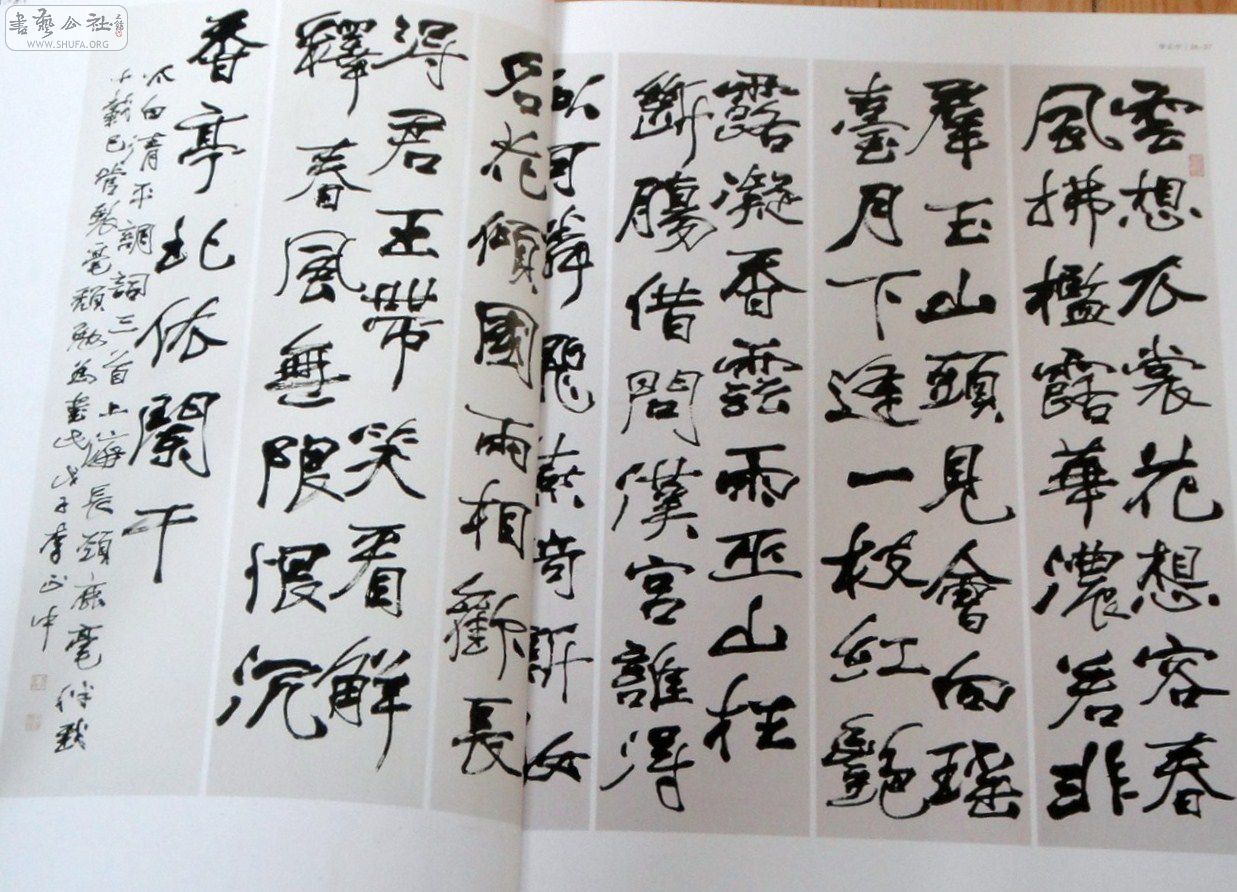 雲想衣裳花想容春
風拂檻露華濃若非
羣玉山頭見會向瑤
臺月下逢一枝紅艷
露凝香雲雨巫山枉
斷腸借問漢宮誰得
似可憐飛燕倚新妝
名花傾國兩相歡長
得君王帶笑看解
釋春風無限恨沉
香亭北倚闌干
李白清平調詞三首上海長頸鹿毫伴我
十載已管裂毫頹勉為書此戊子李正中
書藝公社
WWW.SHUFA.ORG